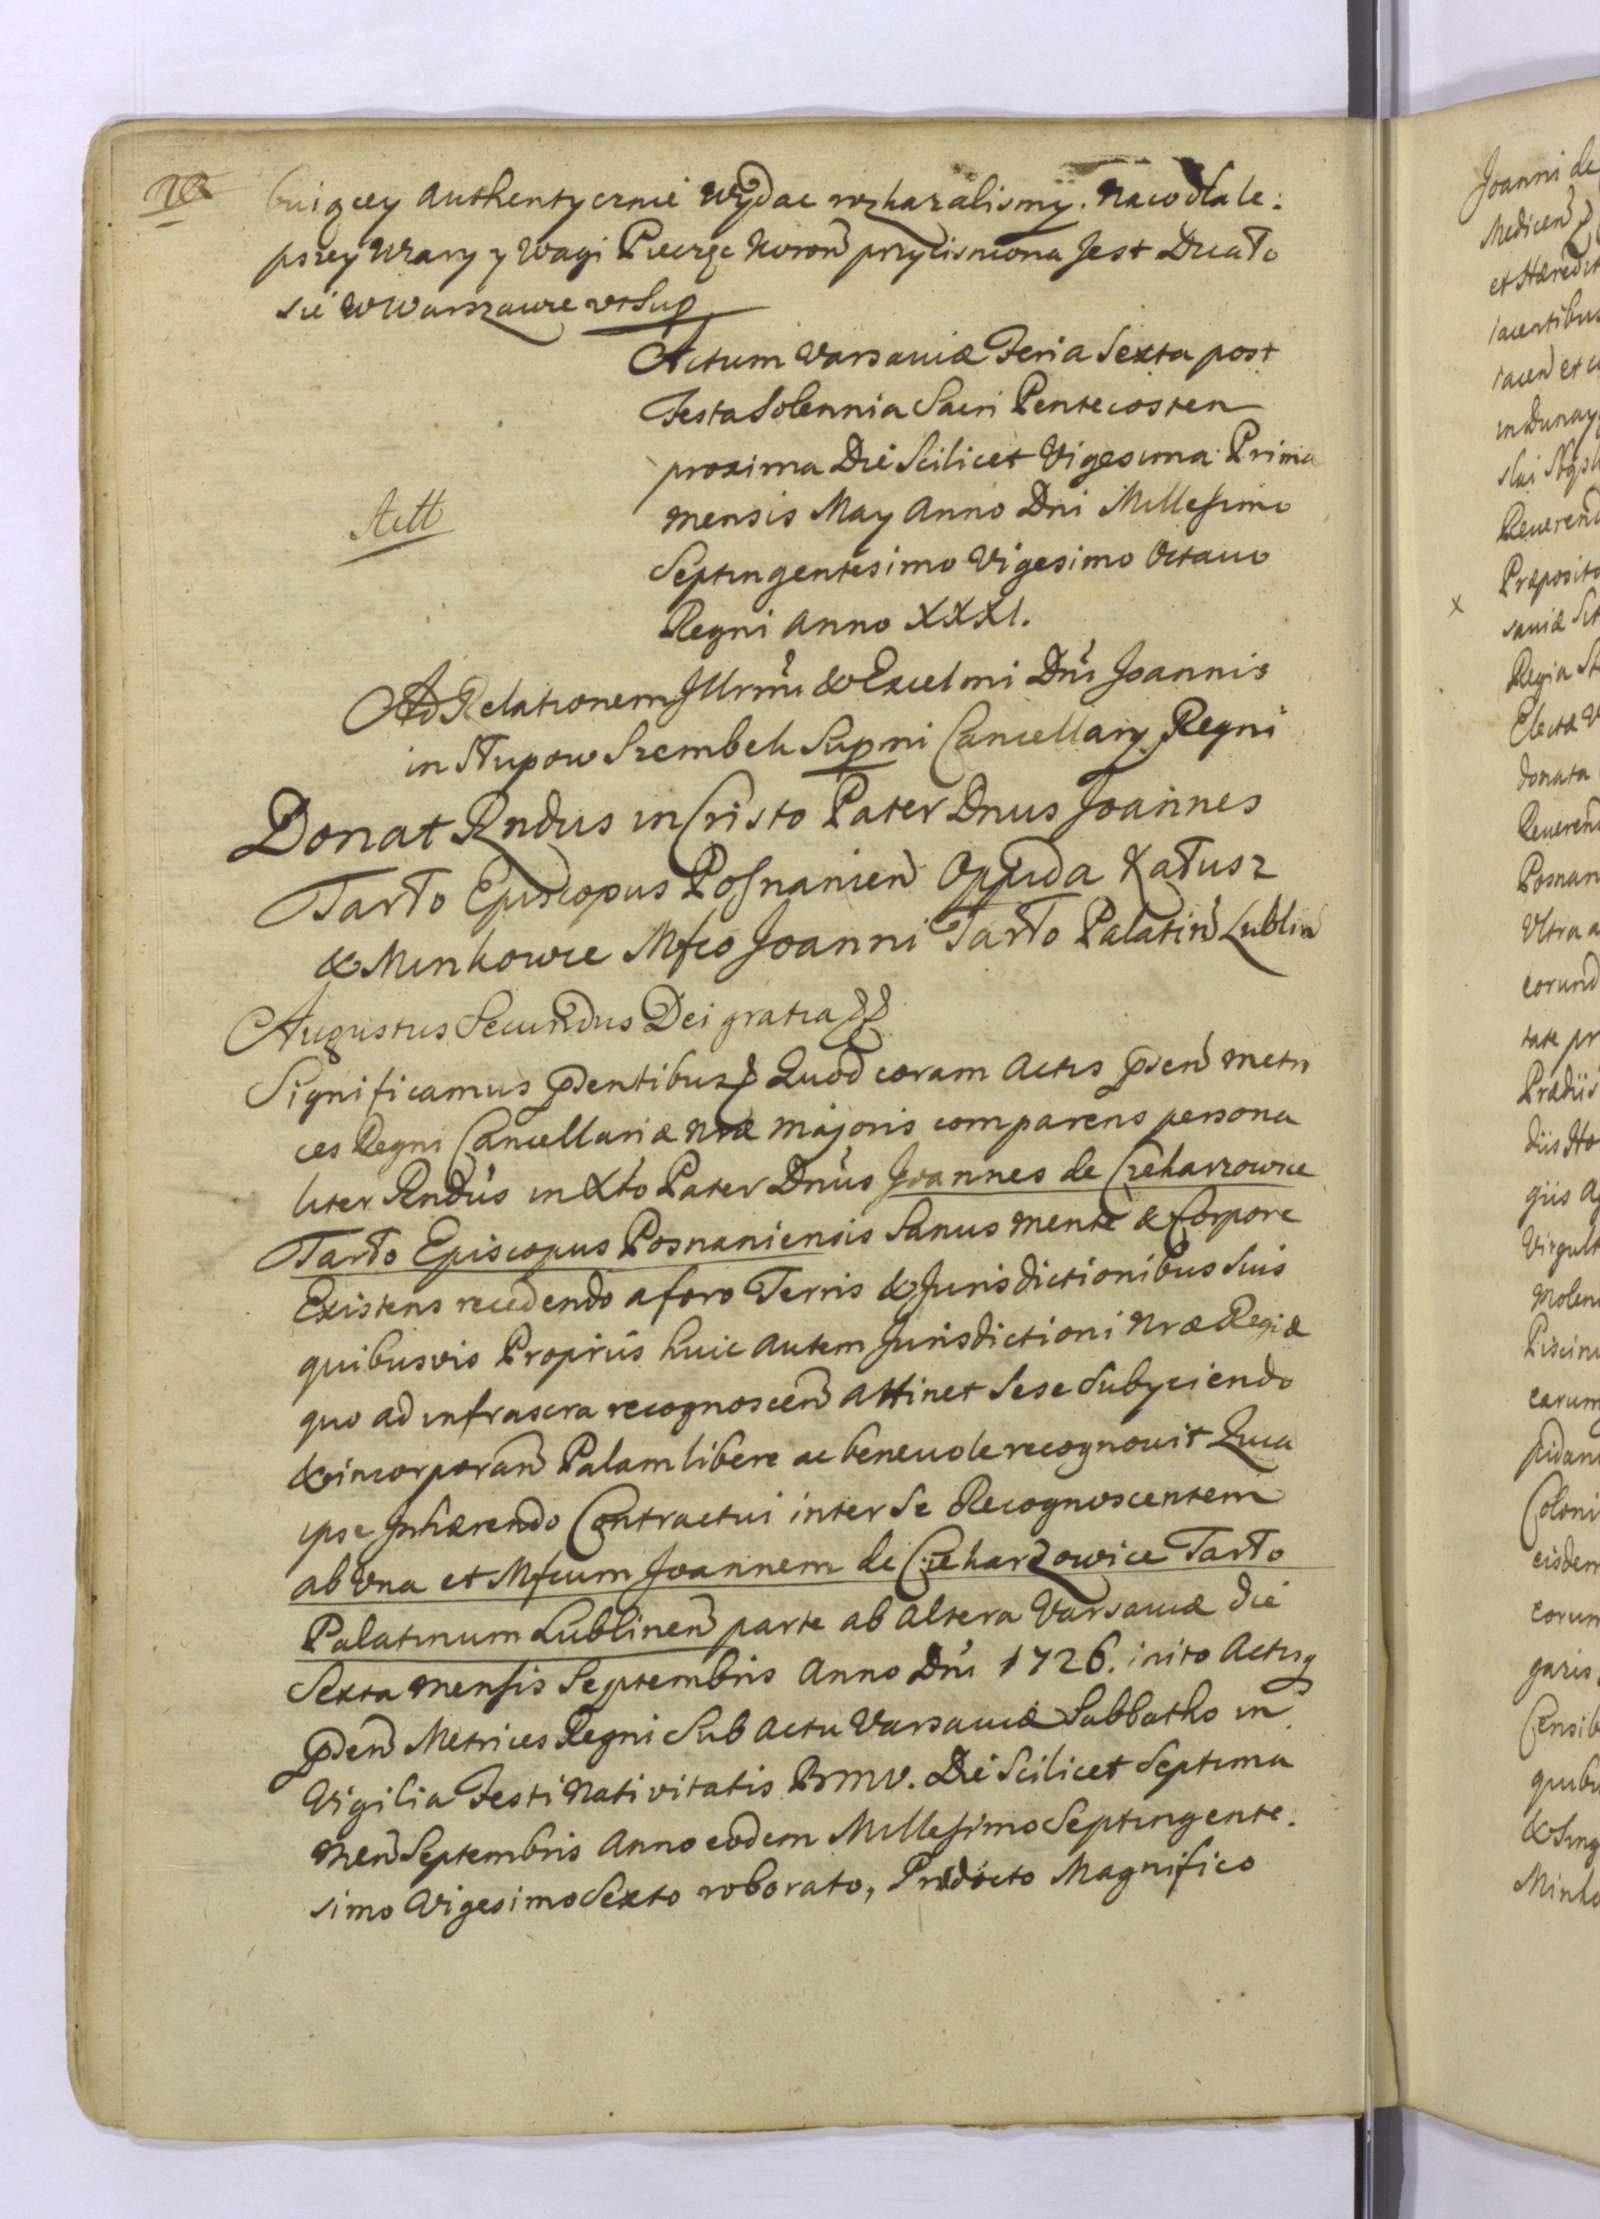 buiącey Authentycznie Wydac rozkazalismy. Na co dla le:
pszey Wiary y Wagi Pieczęc Koron przycisniona Jest Działo
sie w Warszawie ut Sup
Actum Varsaviæ Feria Sexta post
Festa Solennia Sacri Pentecosten
proxima Die Scilicet Vigesima Prima
mensis May Anno Dni Millesimo
Actt
Septingentesimo Vigesimo Octavo
Regni Anno XXXI.
Ad Relationem Illrmi & Excelmi Dni Joannis
in Słupow Szembek Supmi Cancellary Regni
Donat Rndus in Cristo Pater Dnus Joannes
Tarło Episcopus Posnanien Oppida Kałusz
& Minkowce Mfco Joanni Tarło Palatin Lublin
Augustus Secundus Dei gratia
Significamus pntibus Quod coram Actis psen Metri
ces Regni Cancellariæ nræ majoris comparens persona
liter Rndus in Xto Pater Dnus Joannes de Czekarzowice
Tarło Episcopus Posnaniensis Sanus mente & Corpore
Existens recedendo a foro Terris & Jurisdictionibus Suis
quibusvis Propriis huic autem Jurisdictioni Nræ Regiæ
quo ad infrascra recognoscen attinet Sese Subyciendo
& incorporan Palam libere ac benevole recognovit Quia
ipse Inhærendo Contractui inter Se Recognoscentem
ab Una et Mfcum Joannem de Czekarzowice Tarło
Palatinum Lublinen parte ab Altera Varsaviæ die
Sexta mensis Septembris Anno Dni 1726. inito Actisq
psen Metrices Regni Sub Actu Varsaviæ Sabbatho in
Vigilia Festi Nativitatis Bmv. Die Scilicet Septima
men Septembris Anno eodem Millesimo Septingente.
simo Vigesimo Sexto roborato, Prædicto Magnifico
Joanni de
Medicen
et Hæredit
in Dunay
Reveren
Præposito
x
Regia
Electæ
donata
Reveren
Posnan
Ultra a
eorund
tate pr
Prædiis
diis
giis
Virgult
Molen
Piscin
earum
Coloni
eisdem
corum
garis
Censib
quibu
& Sing
Minko